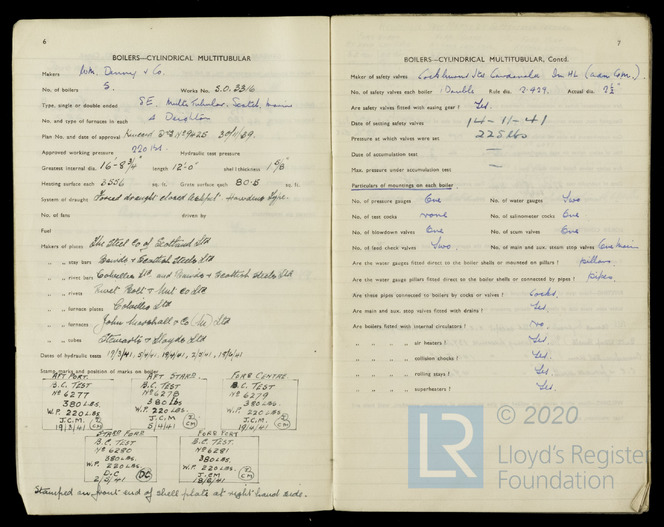 6
BOILERS—CYLINDRICAL MULTITUBULAR
Makers Wm. Denny & Co.
No. of boilers 5. Works No. S.O. 3316
Type, single or double ended S.E. Multi Tubular, Scotch, Marine
No. and type of furnaces in each 4 Deighton
Plan No. and date of approval 30/11/39.
Approved working pressure 220 lbs. Hydraulic test pressure
Greatest internal dia. 16'-8 3/4" length 12'-0" shell thickness 1 5/8"
Heating surface each 3556 sq. ft. Grate surface each 80.5 sq. ft.
System of draught Forced draught closed ashpit Howdens Type.
No. of fans driven by
Fuel
Makers of plates The Steel Co of Scotland Ltd
„ „ stay bars & Scottish Steels Ltd
„ „ rivet bars Colvilles Ltd. and & Scottish Steels Ltd
„ „ rivets Rivet Bolt & Nut Co Ltd
„ „ furnace plates Colvilles Ltd
„ „ furnaces John Marshall & Co Ltd
„ „ tubes Stewarts & Lloyds Ltd
Dates of hydraulic tests 19/3/41, 5/4/41, 19/4/41, 2/5/41, 18/6/41
Stamp marks and position of marks on boiler
AFT PORT. AFT STARD. FORD CENTRE.
B.C. TEST B.C. TEST B.C. TEST
No 6277 No 6278 No 6279
380 LBS. 380 Lbs 380 LBS.
W.P. 220 LBS. W.P. 220 LBS. W.P. 220 LBS.
J.C.M. J.C.M J.C.M
19/3/41 5/4/41 19/4/41
STARD FORD FORD PORT
B.C. TEST B.C. TEST
No 6280 No 6281
380 LBS. 380 LBS.
W.P. 220 LBS W.P. 220 LBS
D.C DC J.C.M
2/5/41 18/6/41
Stamped on front end of shell plate at right hand side.
7
BOILERS—CYLINDRICAL MULTITUBULAR, Contd.
Maker of safety valves Cockburns Ltd Cardonald
No. of safety valves each boiler 1 Double Rule dia. 3.429. Actual dia. 3½"
Are safety valves fitted with easing gear? Yes.
Date of setting safety valves 14-11-41
Pressure at which valves were set 225 lbs
Date of accumulation test —
Max. pressure under accumulation test —
Particulars of mountings on each boiler
No. of pressure gauges One No. of water gauges Two
No. of test cocks none No. of salinometer cocks One
No. of blowdown valves One No. of scum valves One
No. of feed check valves Two. No. of main and aux. steam stop valves One main
Are the water gauges fitted direct to the boiler shells or mounted on pillars? pillars.
Are the water gauge pillars fitted direct to the boiler shells or connected by pipes? pipes.
Are these pipes connected to boilers by cocks or valves? Cocks.
Are main and aux. stop valves fitted with drains? Yes.
Are boilers fitted with internal circulators? No.
„ „ „ „ air heaters? Yes.
„ „ „ „ collision chocks? Yes.
„ „ „ „ rolling stays? Yes.
„ „ „ „ superheaters? Yes.
LR © 2020
Lloyd's Register
Foundation